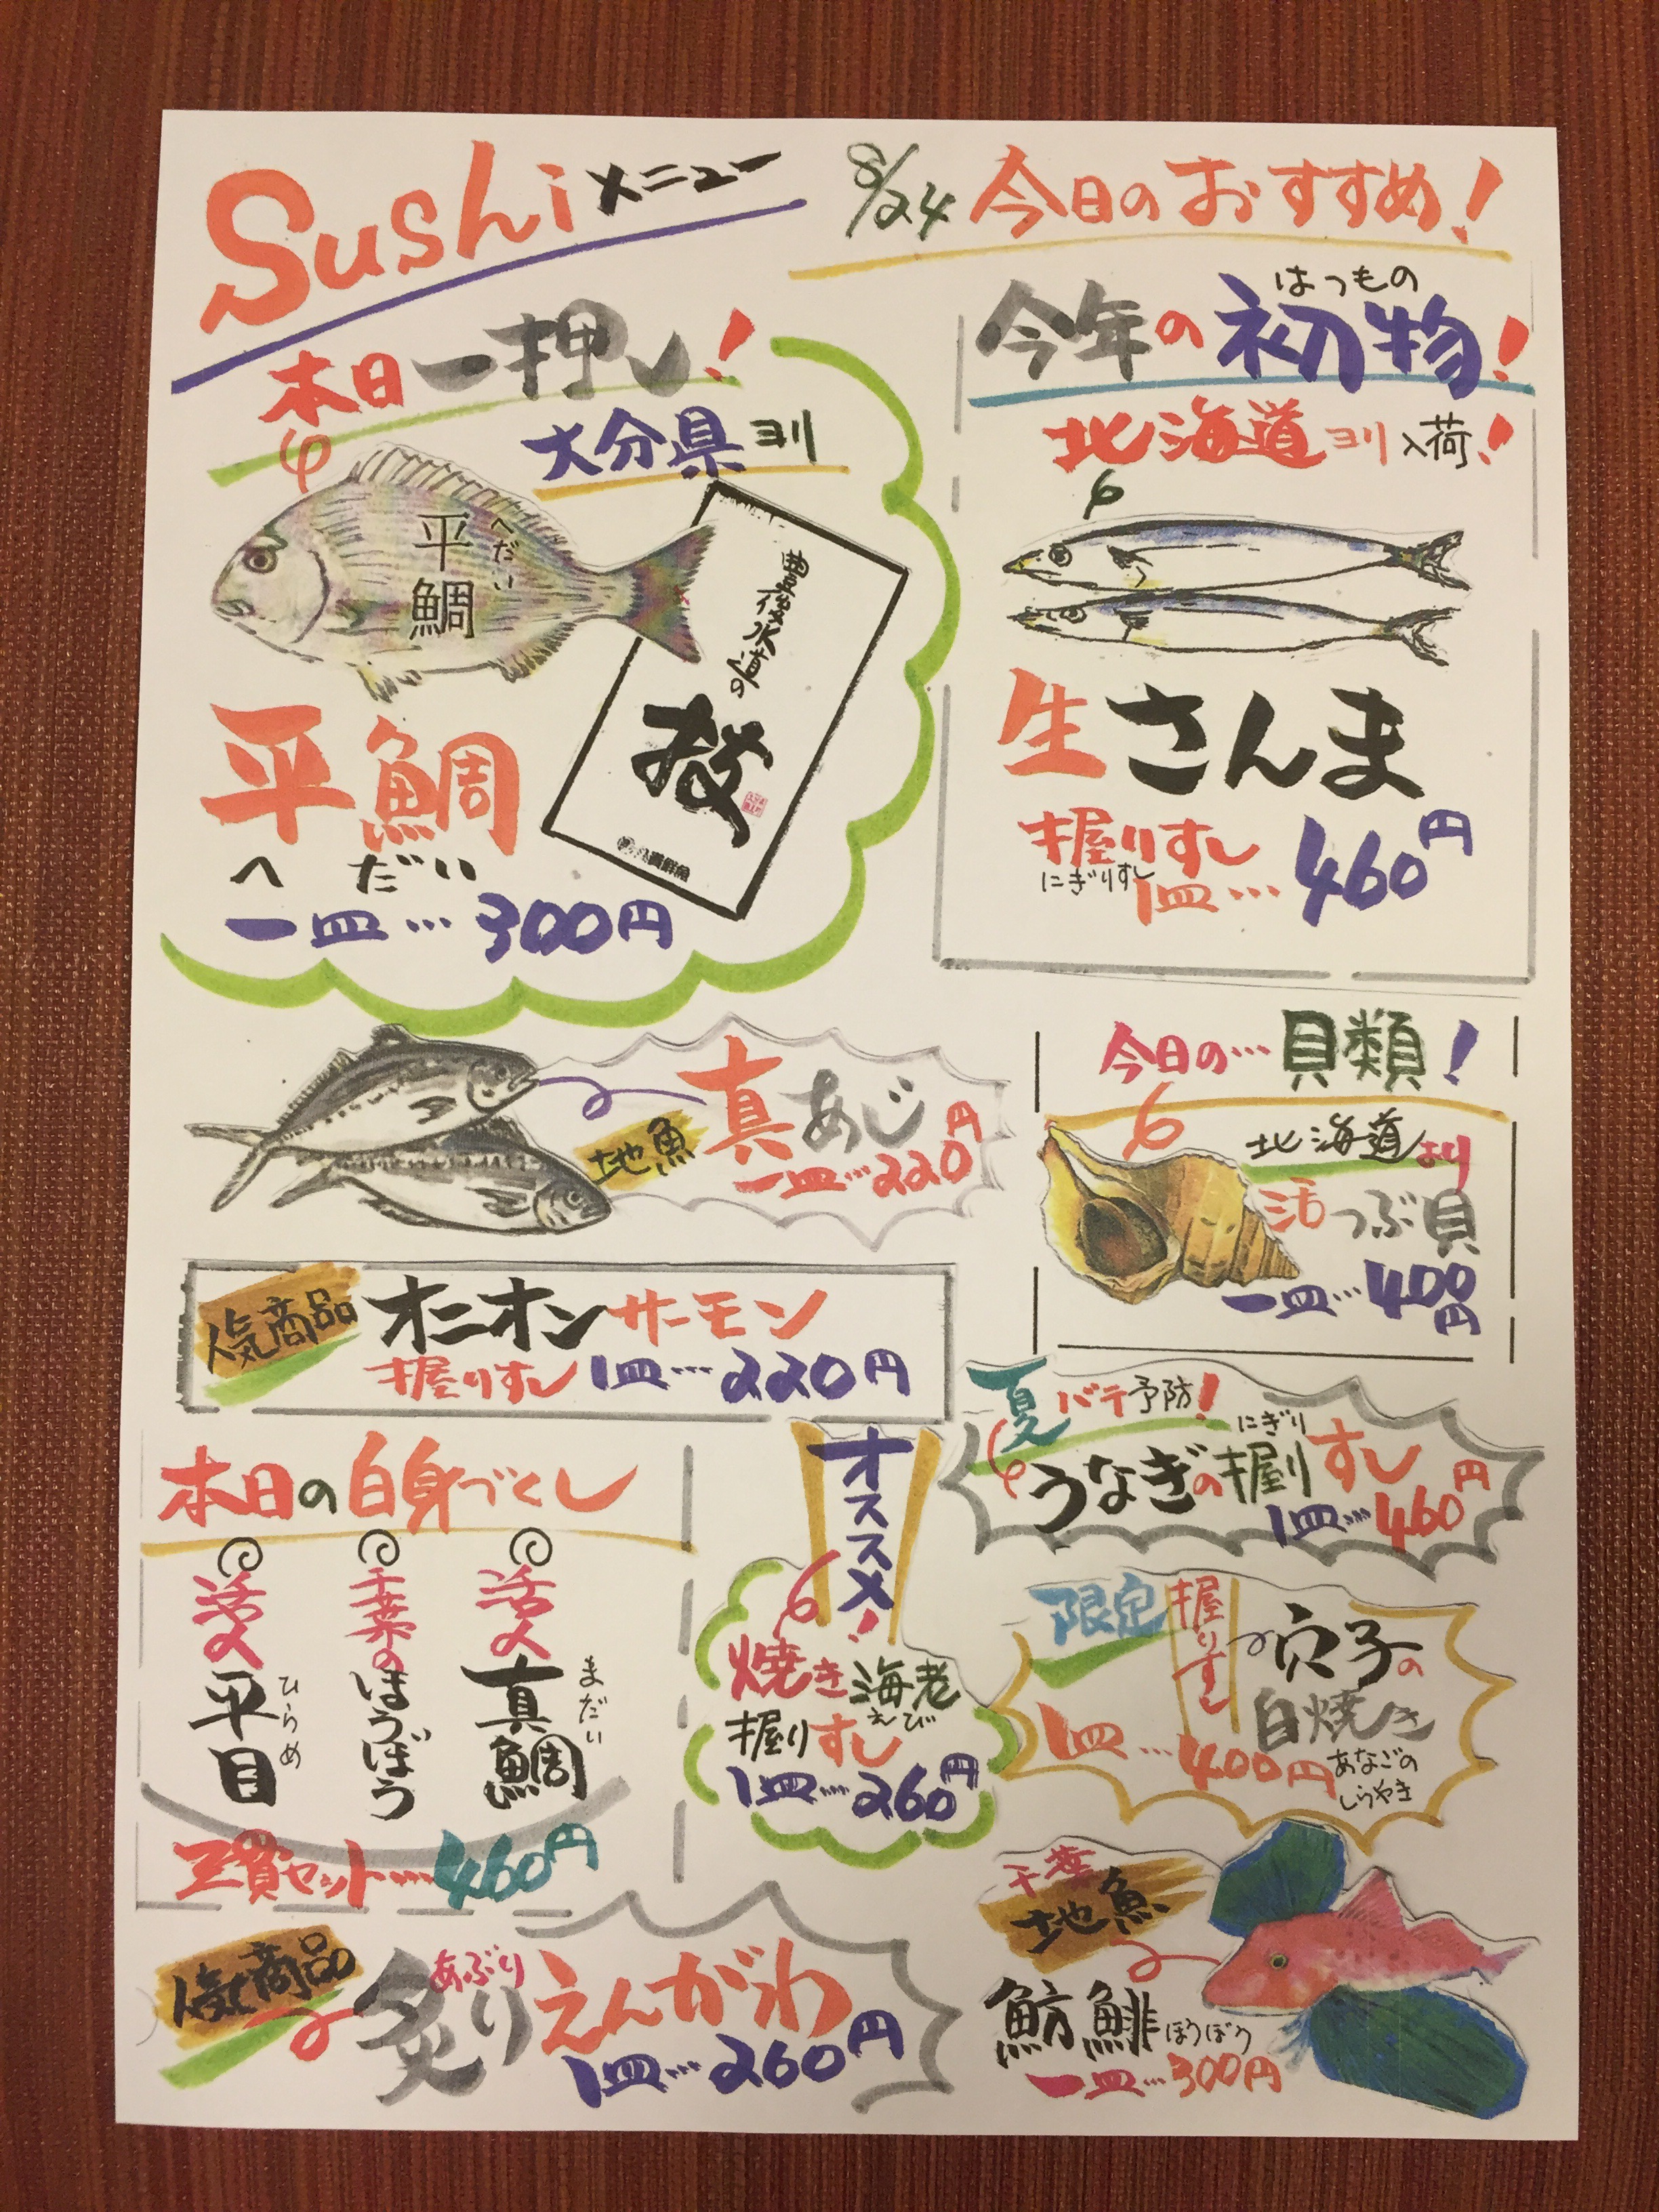 Sushi メニュー
8/24 今日のおすすめ!
本日一押し!
大分県ヨリ
平鯛
へだい
豊後水道の
平鯛
へ だい
一皿…300円
はつもの
今年の初物!
北海道ヨリ入荷!
生さんま
握りすし
にぎりすし
1皿…460円
地魚
真あじ
一皿…220円
今日の…貝類!
北海道より
活つぶ貝
一皿…400円
人気商品
オニオンサーモン
握りすし 1皿…220円
夏バテ予防!
にぎり
うなぎの握りすし
1皿…460円
本日の白身づくし
活〆
平目
ひらめ
千葉の
ほうぼう
活〆
真鯛
まだい
三貫セット…460円
オススメ!
焼き海老
えび
握りすし
1皿…260円
限定
握りすし
穴子の
白焼き
あなごの
しらやき
1皿…400円
人気商品
あぶり
炙りえんがわ
1皿…260円
千葉
地魚
魴鯡
ほうぼう
一皿…300円